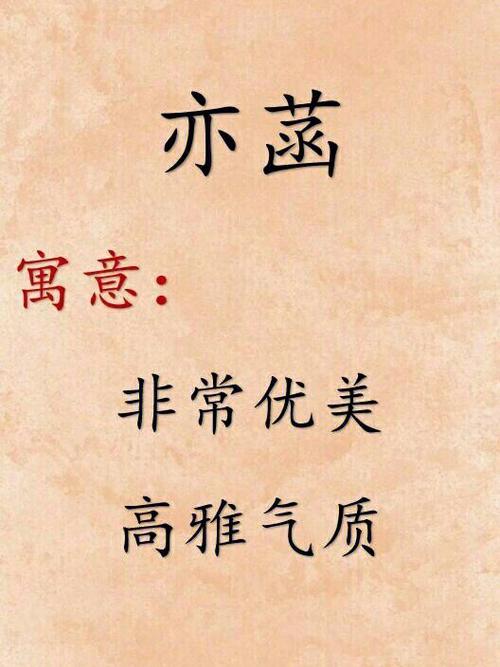 亦菡
寓意：
非常优美
高雅气质